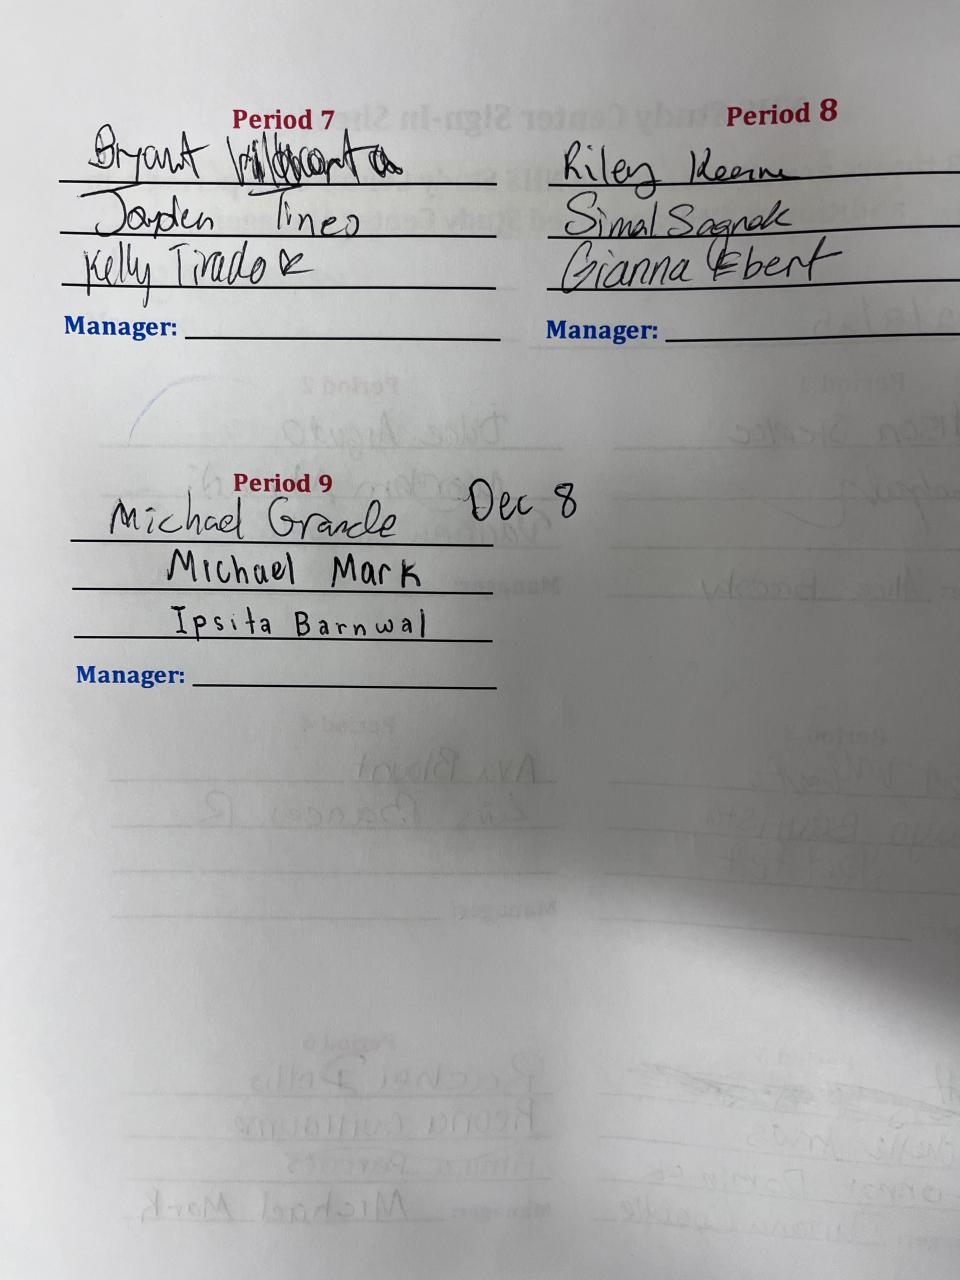 Period 7
Bryant
Jayden Tineo
Kelly Tirado
Manager:
Period 8
Riley Keane
Simal Sagnak
Gianna Ebert
Manager:
Period 9
Dec 8
Michael Grande
Michael Mark
Ipsita Barnwal
Manager: